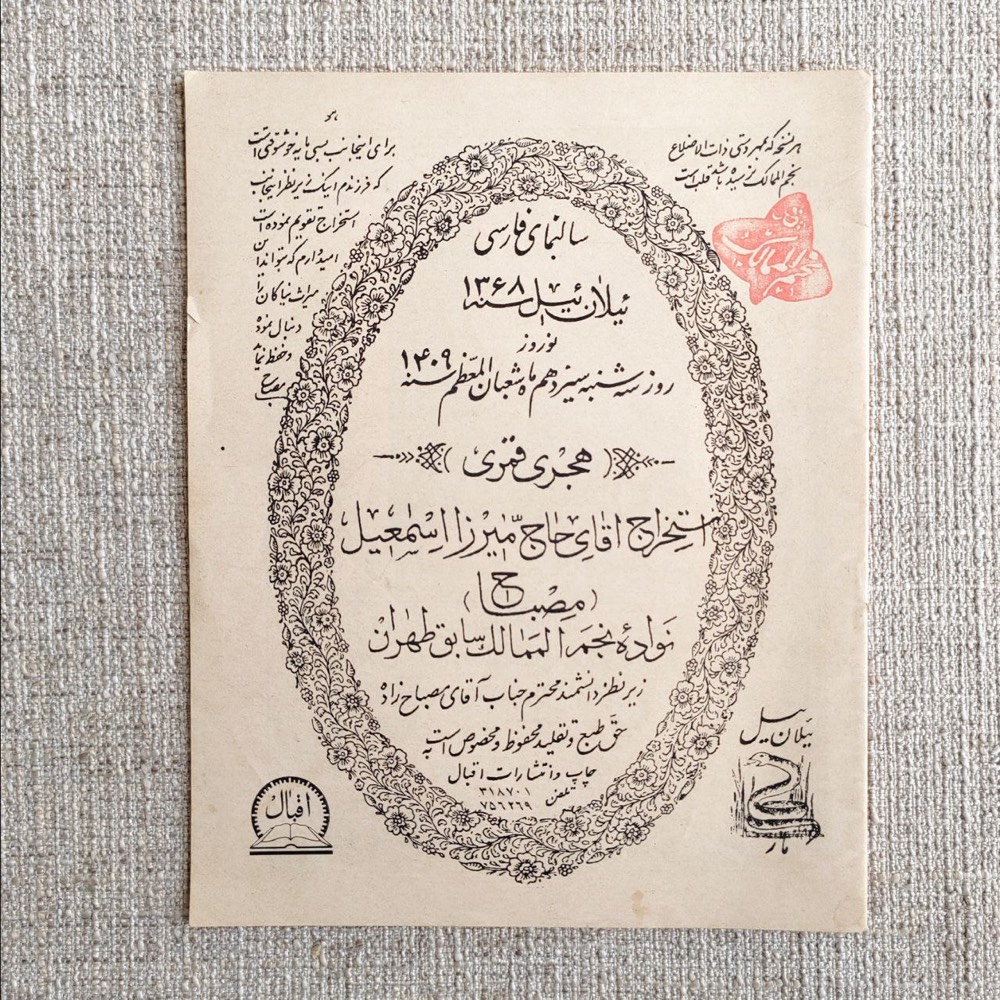 هر نسخه که بمهر دستی ذات الاضلاع
نجم الممالک نرسیده باشد قلب است
نجم الممالک
برای اینجانب بسی مایه خوشوقتی است
که فرزندم اینک زیر نظر اینجانب
استخراج تقویم نموده است
امیدوارم که بتواند این
میراث نیاکان را
دنبال نموده
و حفظ نماید
مصباح
سالنمای فارسی
ئیلان ئیل سنه ۱۳۶۸
نوروز
روز سه شنبه سیزدهم ماه شعبان المعظم سنه ۱۴۰۹
(هجری قمری)
استخراج آقای حاج میرزا اسمعیل
(مصباح)
نواده نجم الممالک سابق طهران
زیر نظر دانشمند محترم جناب آقای مصباح زاده
حق طبع و تقلید محفوظ و مخصوص است به
چاپ و انتشارات اقبال
تلفن ۳۱۸۷۰۱
۷۵۶۲۶۹
ییلان ییل
مار
اقبال